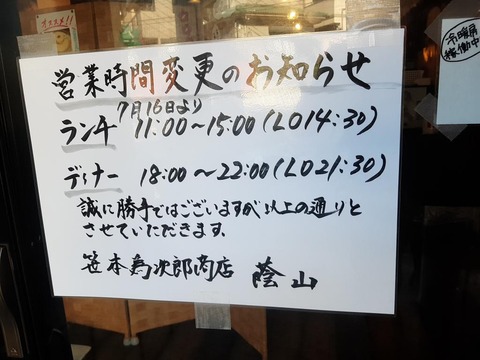 営業時間変更のお知らせ
7月16日より
ランチ 11:00～15:00(LO14:30)
ディナー 18:00～22:00(LO21:30)
誠に勝手ではございますが以上の通りと
させていただきます。
笹本為次郎商店 蔭山
オススメ!!
冷暖房
稼働中